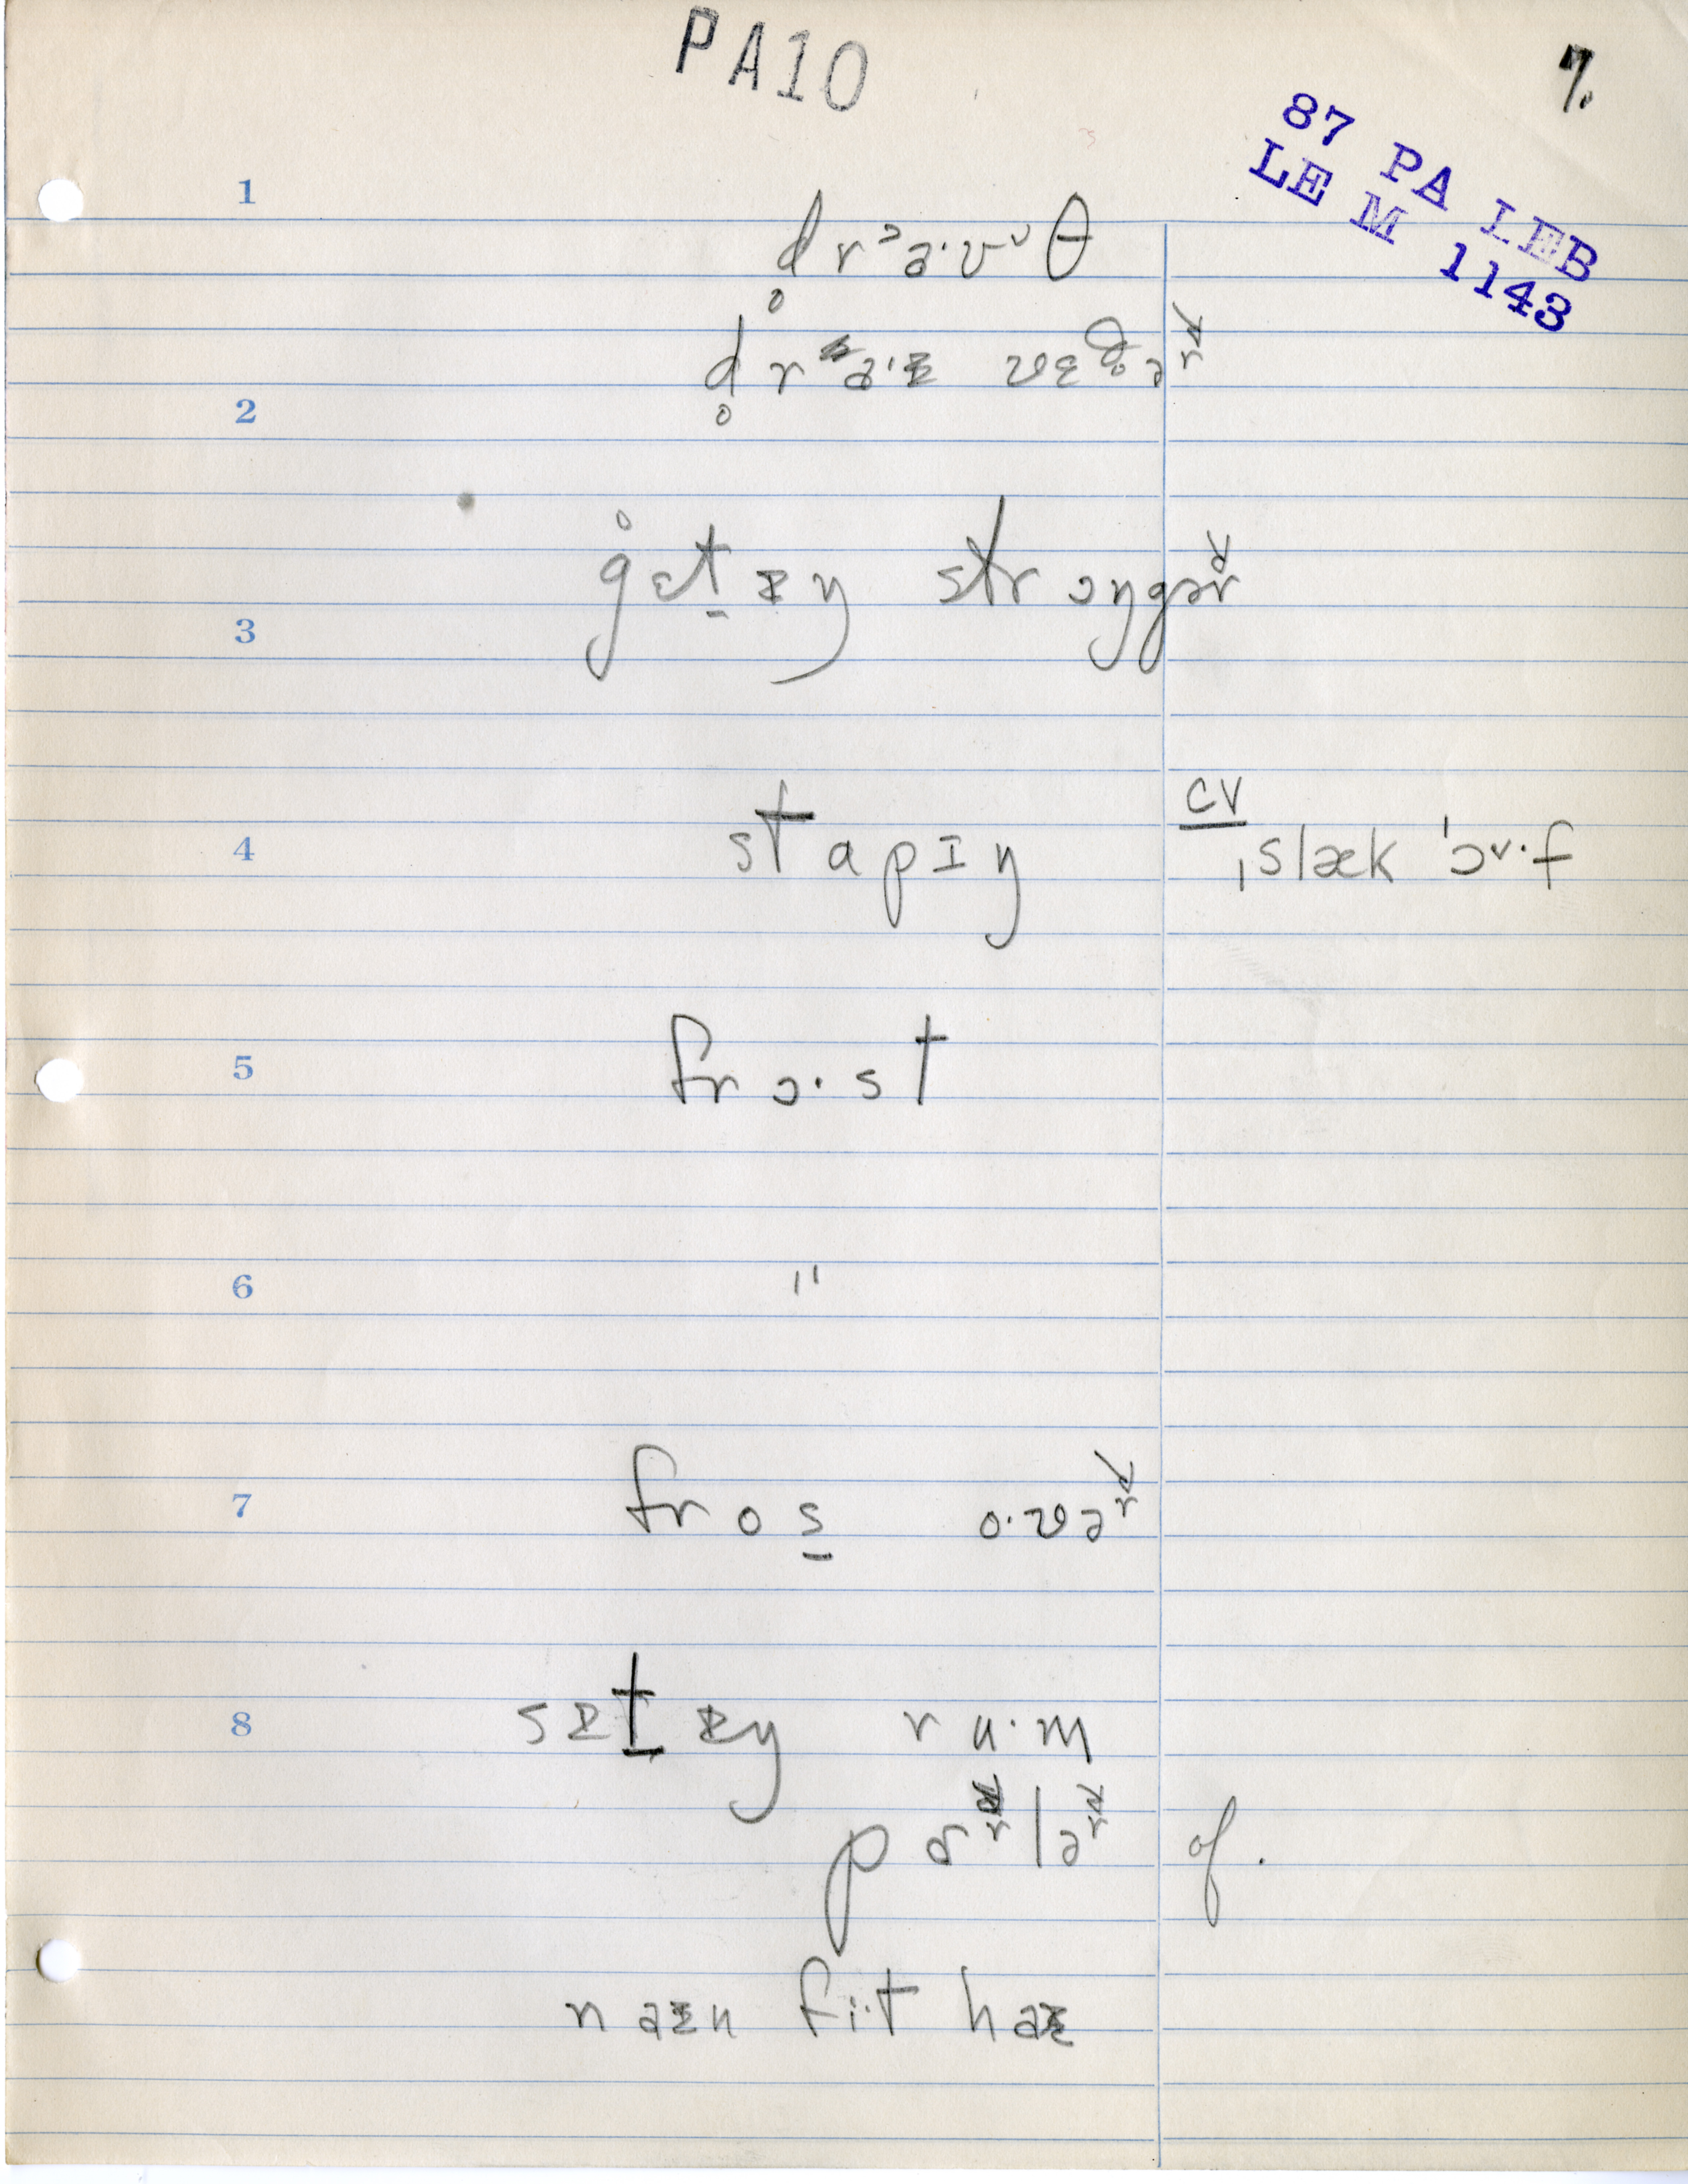 PA10
7.
87 PA LEB
LE M 1143
1
d̥rᵊa·ʊᵛθ
2
d̥ra·ɪ vɛð̥ər
3
g̊ɛt̬ɪŋ strɔŋgər
4
stapɪŋ
CV
ˌslækˈɔʌ·f
5
frɔ·st
6
"
7
fros̠ o·vər
8
sɪt̬ɪŋ ru·m
pɑrlər of.
naɪn fi·t haɪ